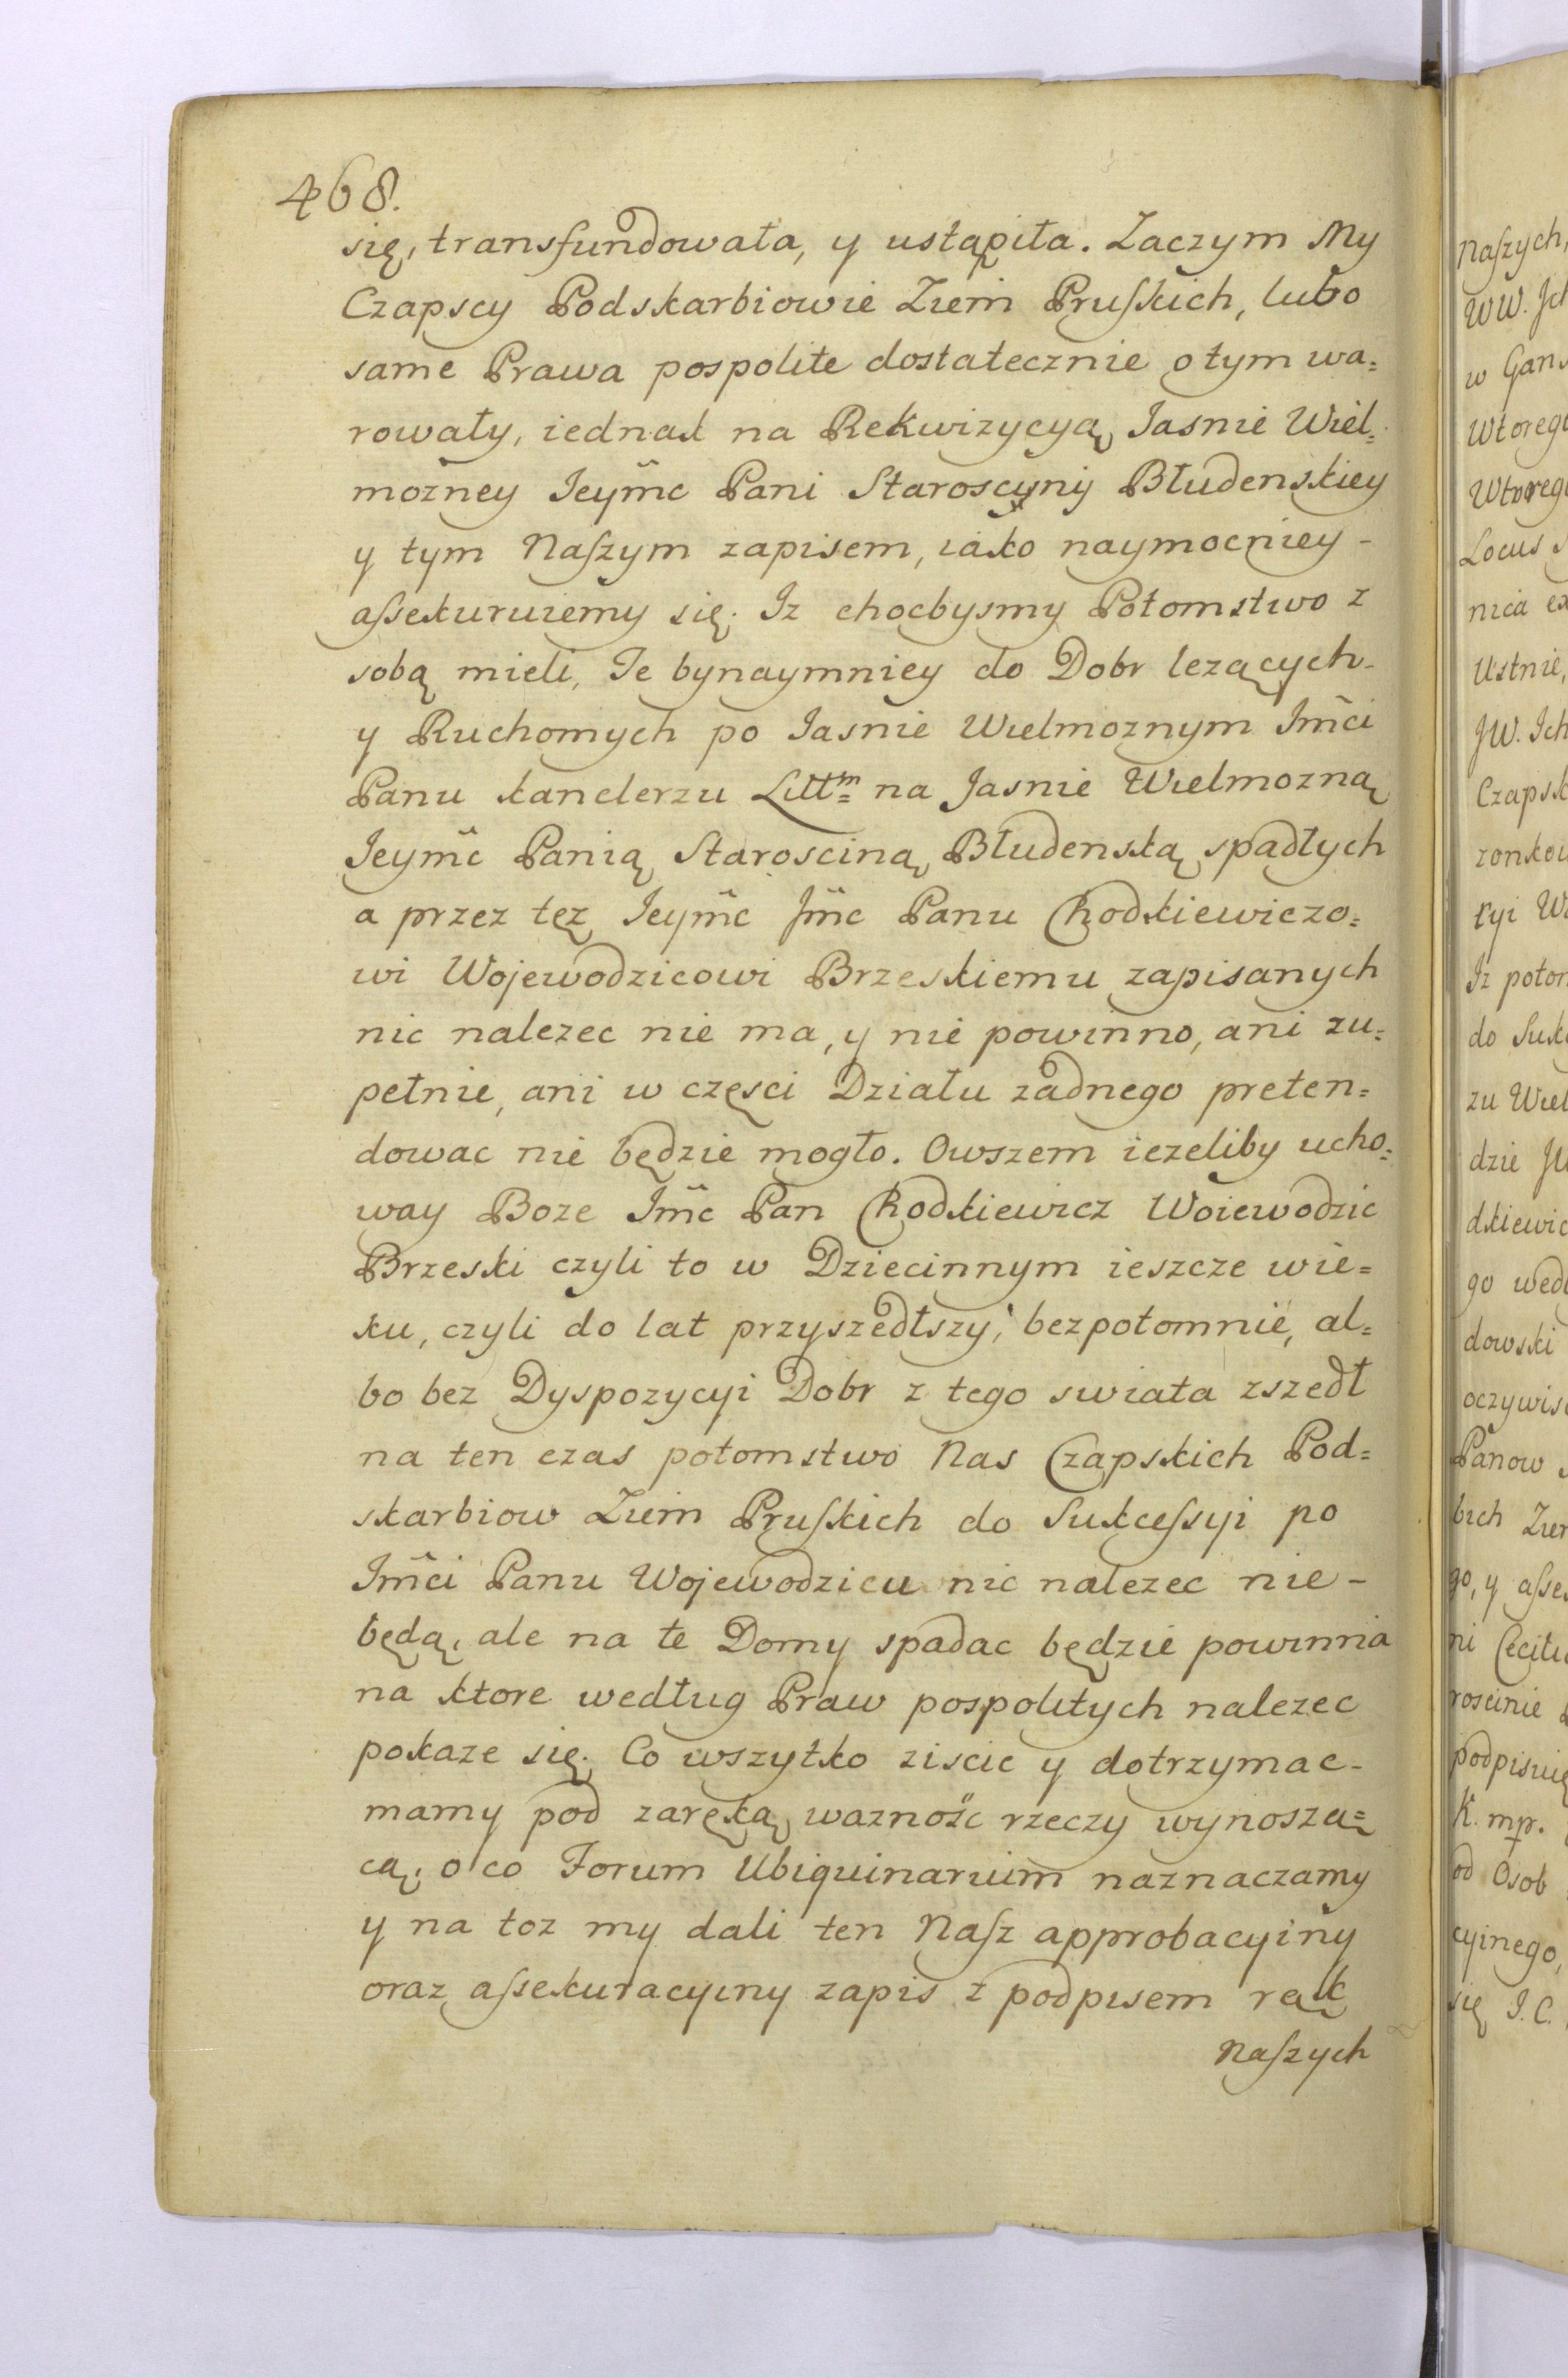 468.
się, transfundowała, y ustąpiła. Zaczym My
Czapscy Podskarbiowie Ziem Pruſkich, lubo
same Prawa pospolite dostatecznie o tym wa=
rowały, iednak na Rekwizycyą Jasnie Wiel=
mozney Jeymc̃ Pani Staroscyny Błudenskiey
y tym Naſzym zapisem, iako naymocniey -
aſsekuruiemy się. Iz chocbysmy Potomstwo z
sobą mieli, Te bynaymniey do Dobr lezących -
y Ruchomych po Jasnie Wielmoznym Jm̃ci
Panu kanclerzu Littm= na Jasnie Wielmozną
Jeym̃c Panią Staroscinę Błudenską spadłych
a przez tęz Jeym̃c Jm̃c Panu Chodkiewiczo=
wi Wojewodzicowi Brzeskiemu zapisanych
nic nalezec nie ma, y nie powinno, ani zu=
pełnie, ani w częsci Działu zadnego preten=
dowac nie będzie mogło. Owszem iezeliby ucho=
way Boze Jm̃c Pan Chodkiewicz Woiewodzic
Brzeski czyli to w Dziecinnym ieszcze wie=
ku, czyli do lat przyszedłszy, bezpotomnie, al=
bo bez Dyspozycyi Dobr z tego swiata zszedł
na ten czas potomstwo Nas Czapskich Pod=
skarbiow Ziem Pruſkich do Sukceſsyi po
Jm̃ci Panu Wojewodzicu nic nalezec nie -
będą, ale na te Domy spadac będzie powinna
na ktore według Praw pospolitych nalezec
pokaze się. Co wszytko ziscic y dotrzymac -
mamy pod zaręką waznośc rzeczy wynoszą=
cą, o co Forum Ubiquinarium naznaczamy
y na toz my dali ten Naſz approbacyiny
oraz aſsekuracyiny zapis z podpisem rąk
Naſzych
Naſzych,
WW. Jch
w Gans
Wtorego
Wtorego
Locus
nica ex
Ustnie,
JW. Ich
Czapsk
zonkow
ryi
Iz poto
do Suk
zu Wiel
dzie JW
dkiewic
go wedł
dowski
oczywis
Panow
bich Ziem
go, y aſse
ni Cecili
roscinie
podpisuię
K. mp.
od Osob
cyinego,
się J. C.